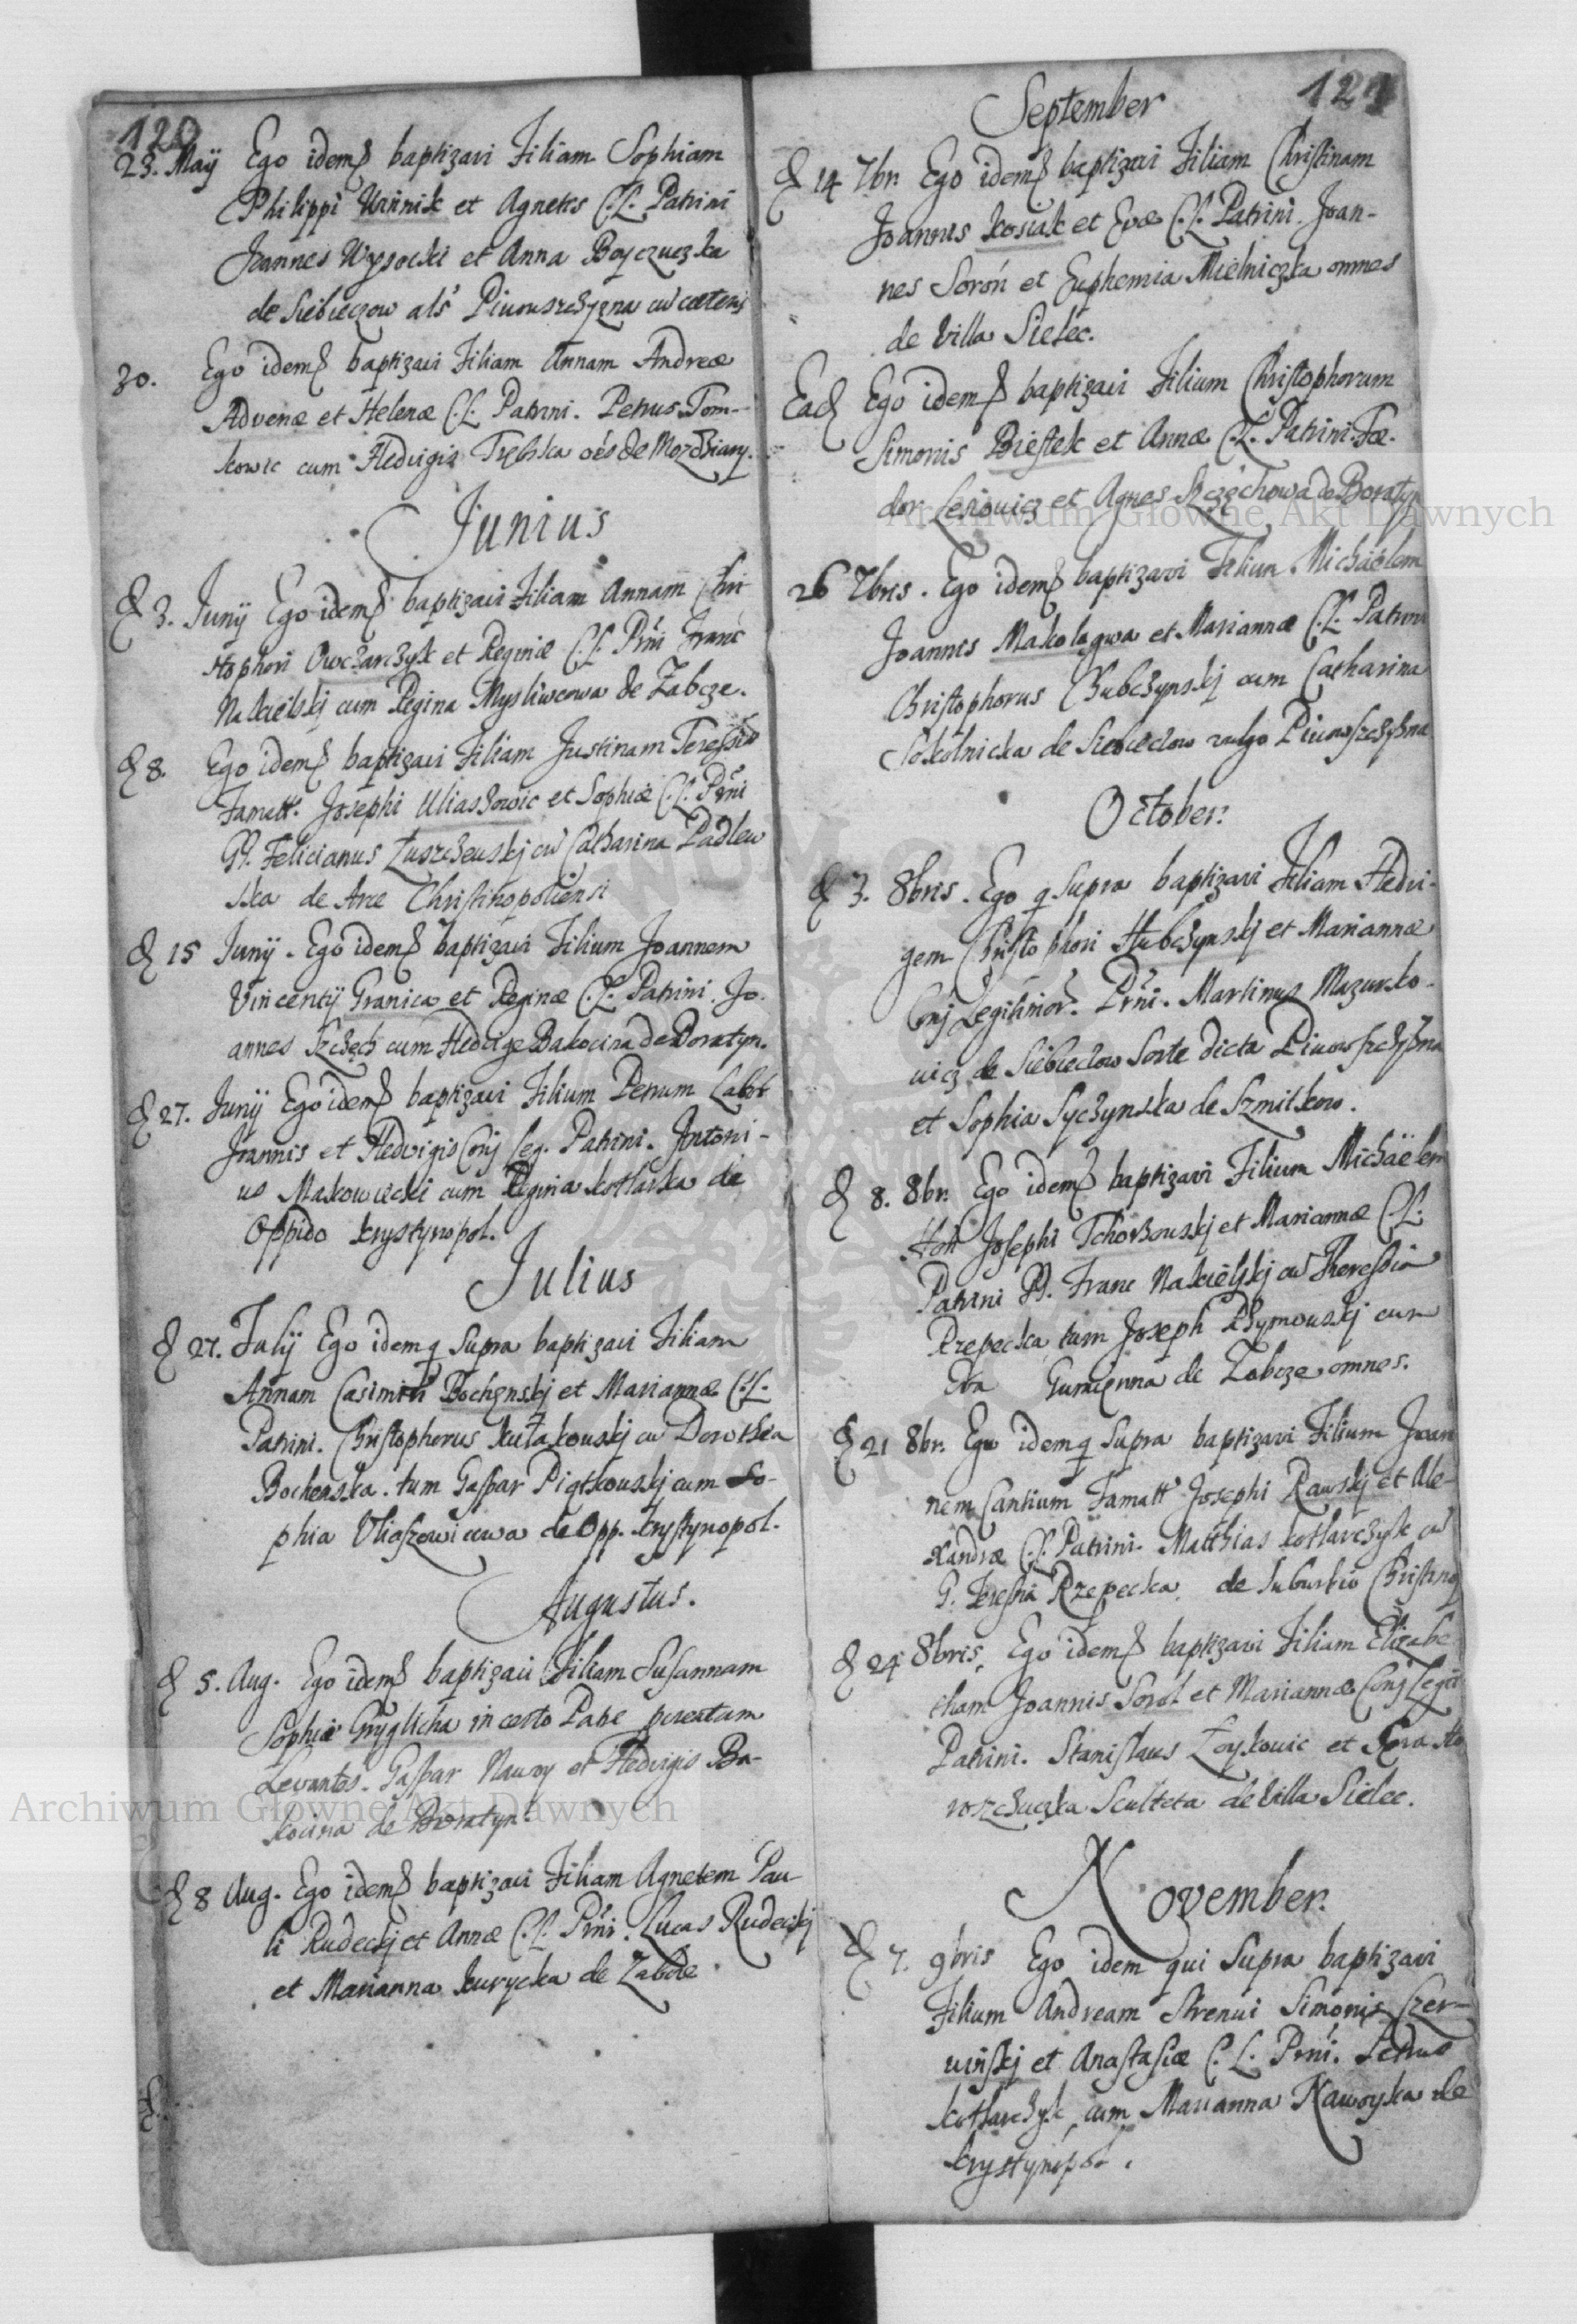 120
23. Maij Ego idem baptizavi Filiam Sophiam
Philippi Winnik et Agnetis C.L. Patrini
Joannes Wysocki et Anna Boyczuczka
de Siebieczow als Piwowszczyzna cu caeteris
30. Ego idem baptizavi Filiam Annam Andreae
Advenae et Helenae C.L. Patrini. Petrus Tom-
kowic cum Hedvigis de
Junius
D 3. Junij Ego idem baptizavi Filiam Annam Chri
stophori Owczarczyk et Reginae C.L. Prni Franc
Nakielskj cum Regina Mysliwcowa de Zabcze.
D 8. Ego idem baptizavi Filiam Justinam Teressia
Famatt. Josephi Uliaszowic et Sophiae C.L. Prni
Felicianus cu Catharina Padlew
ska de Arce Christinopoliensi
D 15 Junij. Ego idem baptizavi Filium Joannem
Vincentij Granica et Reginae C.L. Patrini. Jo.
annes Szczech cum Hedvige Bakocina de Boratyn.
D 27. Junij Ego idem baptizavi Filium Petrum
Joannis et Hedvigis Conj Leg. Patrini. Antoni-
us Makowiecki cum Regina Kotlarka de
Oppido Krystynopol.
Julius
D 27. Julij Ego idem q supra baptizavi Filiam
Annam Casimiri Bochenskj et Mariannae C.L.
Patrini. Christophorus Kułakouskj cu Dorothea
Bochenska. tum Gaspar Piątkouskj cum So-
phia Uliaszowicowa de Opp. Krystynopol.
Augustus.
D 5. Aug. Ego idem baptizavi Filiam Susannam
Sophiae Gryglicha incerto Patre
Levantes. Gaspar Nawoy et Hedvigis Ba-
kocina de Boratyn.
D 8 Aug. Ego idem baptizavi Filiam Agnetem Pau-
li Rudeckj et Annae C.L. Prni. Lucas Rudeckj
et Marianna Kurycka de Zabcze
121
September
D 14 7br. Ego idem baptizavi Filiam Christinam
Joannis Kosiak et Evae C.L. Patrini. Joan-
nes Soroń et Euphemia Mielniczka omnes
de Villa Sielec.
Ead Ego idem baptizavi Filium Christophorum
Simonis Biestek et Annae C.L. Patrini. Fae-
dor Lesiowicz et Agnes Szczęchowa de Boratyn
26 7bris. Ego idem baptizavi Filium Michaelem
Joannis Makolągwa et Mariannae C.L. Patrini
Christophorus Chubczynskj cum Catharina
Sokolnicka de Siebieczow vulgo Piwowszczyzna
October.
D 3. 8bris. Ego q supra baptizavi Filiam Hedvi-
gem Christophori Hubczynskj et Mariannae
Conj Legitimor. Prni. Martinus Mazurko-
wicz de Siebieczow Sorte dicta Piwowszczyzna
et Sophia Syczynska de Szmitkow.
D 8. 8br. Ego idem baptizavi Filium Michaelem
Josephi Tchorzouskj et Mariannae C.L.
Patrini Franc Nakielskj cu Theressia
Rzepecka tum Joseph cum
Eva Gumienna de Zabcze omnes.
D 21 8br. Ego idem q supra baptizavi Filium Joan
nem Cantium Famatt Josephi Rauskj et Ale-
xandrae C.L. Patrini. Matthias Kotlarczyk cu
G. Teressia Rzepecka. de Suburbio Christinop
D 24 8bris. Ego idem baptizavi Filiam Elizabe
tham Joannis Sorol et Mariannae Conj Legit
Patrini. Stanislaus Zoykowic et
Sculteta de Villa Sielec.
November.
D 7. 9bris Ego idem qui supra baptizavi
Filium Andream Strenui Simonis Szer-
winskj et Anastasiae C.L. Prni. Petrus
Kotlarczyk cum Marianna Nawoyka de
Krystynopol.
Archiwum Główne Akt Dawnych
Archiwum Główne Akt Dawnych